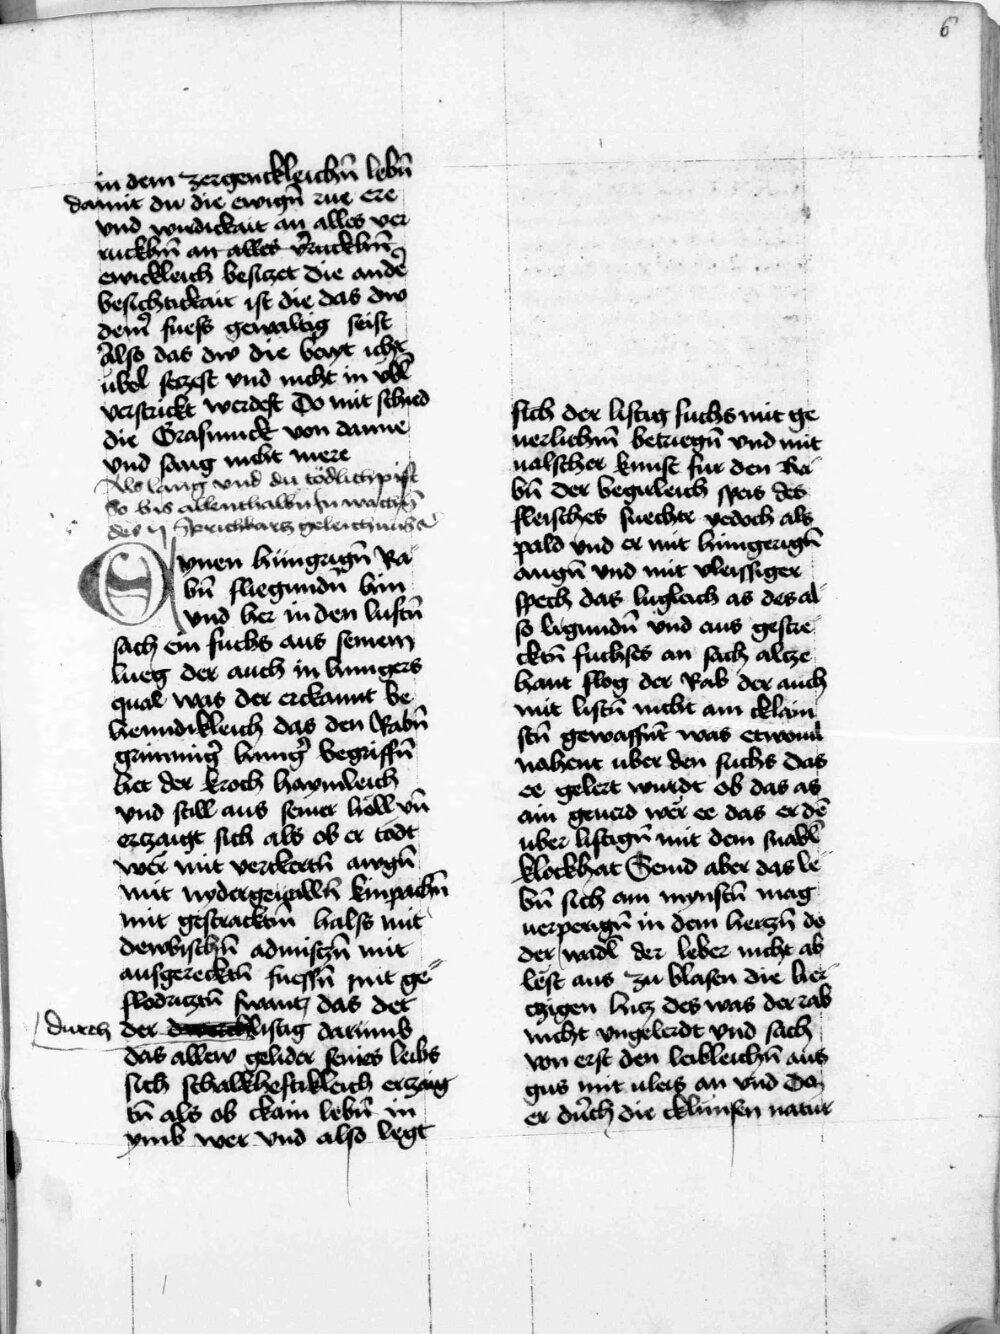 6
in dem zergenckleichn̄ lebn̄
damit du die ewign̄ rue ere
vnd wirdickait an alles ver
ruckhn̄ an alles v̉ruckhn̄
ewickleich besitzet die and̉
besichtickait ist die das dw
dein̉ fuess gewaltig seist
Also das dw die bayt icht
übel setzest vnd nicht in vbl̄
verstrickt werdest Do mit schied
die Grasmuck von danne
vnd sang nicht mere
Als lang vnd du tödlich pist
So bis allenthalbn̄ In wachn̄
des ij Sprichbartz geleichnuss
Eynen hungrign̄ Ra
bn̄ fliegundn̄ hin
vnd her in den luftn̄
sach ein fuchs aus seinem
lueg der auch in hungers
qual was der erckannt be
henndikleich das den Rabn̄
grimmig̉ hung̉ begriffn̄
het der kroch haymleich
vnd still aus seiner höll vn̄
ertzaigt sich als ob er tödt
wër mit verckertn̄ awgn̄
mit nydergeualltn̄ kinpachn̄
mit gestracktm̄ halss mit
dewbischn̄ admitzn̄ mit
ausgerecktn̄ fuessn̄ mit ge
flodritztn̄ swantz das det
durch der listig darumb
das allew gelider seines leibs
sich schalkheftikleich ertzaig
tn̄ als ob ckain lebn̄ in
ymb wer vnd also legt
sich der listig fuchs mit ge
uerlichm̄ betriegn̄ vnd mit
ualscher kunst fur den Ra
bn̄ der begirleich speis des
fleisches suechte yedoch als
pald vnd er mit hungerign̄
augn̄ vnd mit vleissiger
spech das lugleich as des al
so ligundn̄ vnd aus gestre
cktn̄ fuchses an sach altze
hant flog der Rab der auch
mit listn̄ nicht am cklain
stn̄ gewaffnt̄ was etwouil
nahent uber den fuchs das
ee gelert wurdt ob das as
ain geuerd wër ee das er dē
uber listign̄ mit dem snabl̄
klockhat Seind aber das le
bn̄ sich am mynstn̄ mag
uerperign̄ in dem hertzn̄ do
der wadl̄ der leber nicht ab
lest aus zu blasen die her
tzigen hitz des was der rab
nicht vngelerdt vnd sach
von erst den leikleichn̄ aus
gus mit uleis an vnd Do
er durch die cklunsen natur